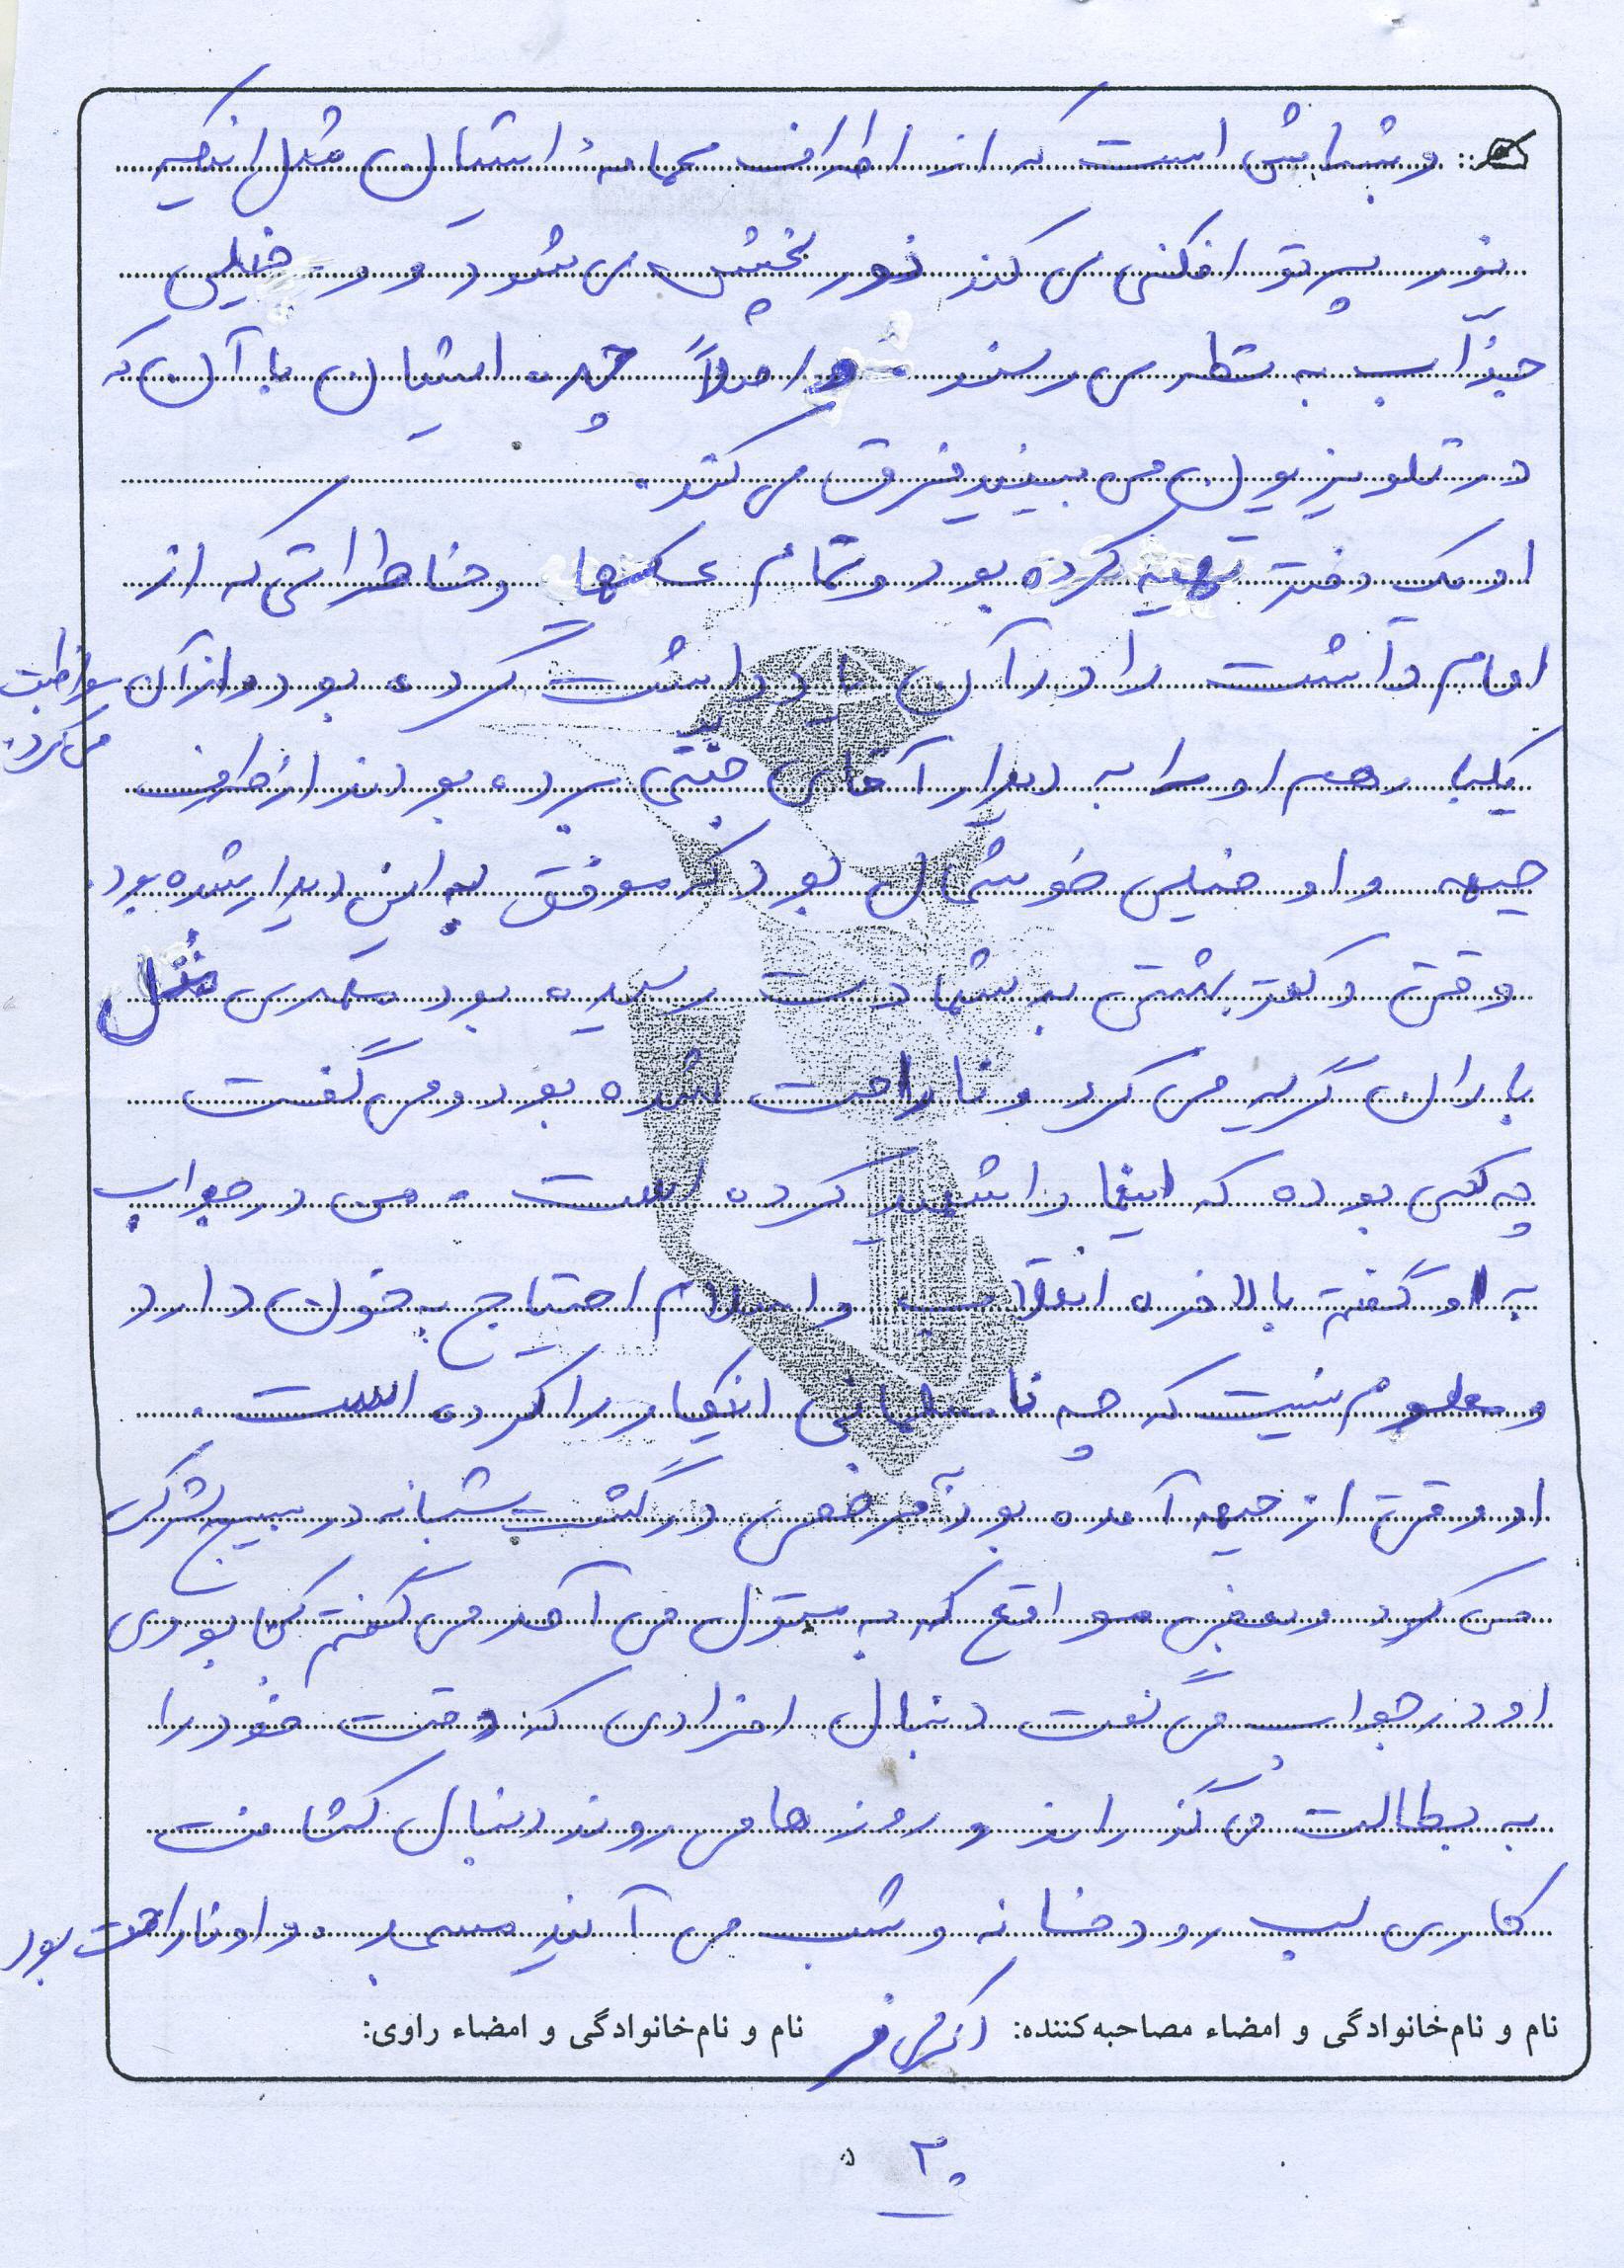 و بشاش است که از اطراف عمامهٔ ایشان مثل اینکه
نور پرتو افکنی می کند نور پخش می شود و خیلی
جذّاب به نظر می رسند و اصلاً چهره ایشان با آن که
در تلویزیون می بینید فرق می کند.
او یک دفتر تهیه کرده بود و تمام عکسها و خاطراتی که از
امام داشت را در آن یادداشت کرده بود و از آن مواظبت می کرد.
یکبار هم او را به دیدار آقای جنتی برده بودند از طرف
جبهه و او خیلی خوشحال بود که موفق به این دیدار شده بود.
وقتی دکتر بهشتی به شهادت رسیده بود مهدی مثل
باران گریه می کرد و ناراحت شده بود و می گفت
چه کسی بوده که اینها را شهید کرده است. من در جواب
به او گفتم بالاخره انقلاب و اسلام احتیاج به خون دارد
و معلوم نیست که چه نامسلمانی اینکار را کرده است.
او وقتی از جبهه آمده بود مرخصی در گشت شبانه در بسیج شرکت
می کرد و بعضی مواقع که به منزل می آمد می گفتم کجا بودی
او در جواب می گفت دنبال افرادی که وقت خود را
به بطالت می گذرانند و روزها می روند دنبال کثافت
کاری لب رودخانه و شب می آیند مسجد و او ناراحت بود
نام و نام‌خانوادگی و امضاء مصاحبه‌کننده: نام و نام‌خانوادگی و امضاء راوی: